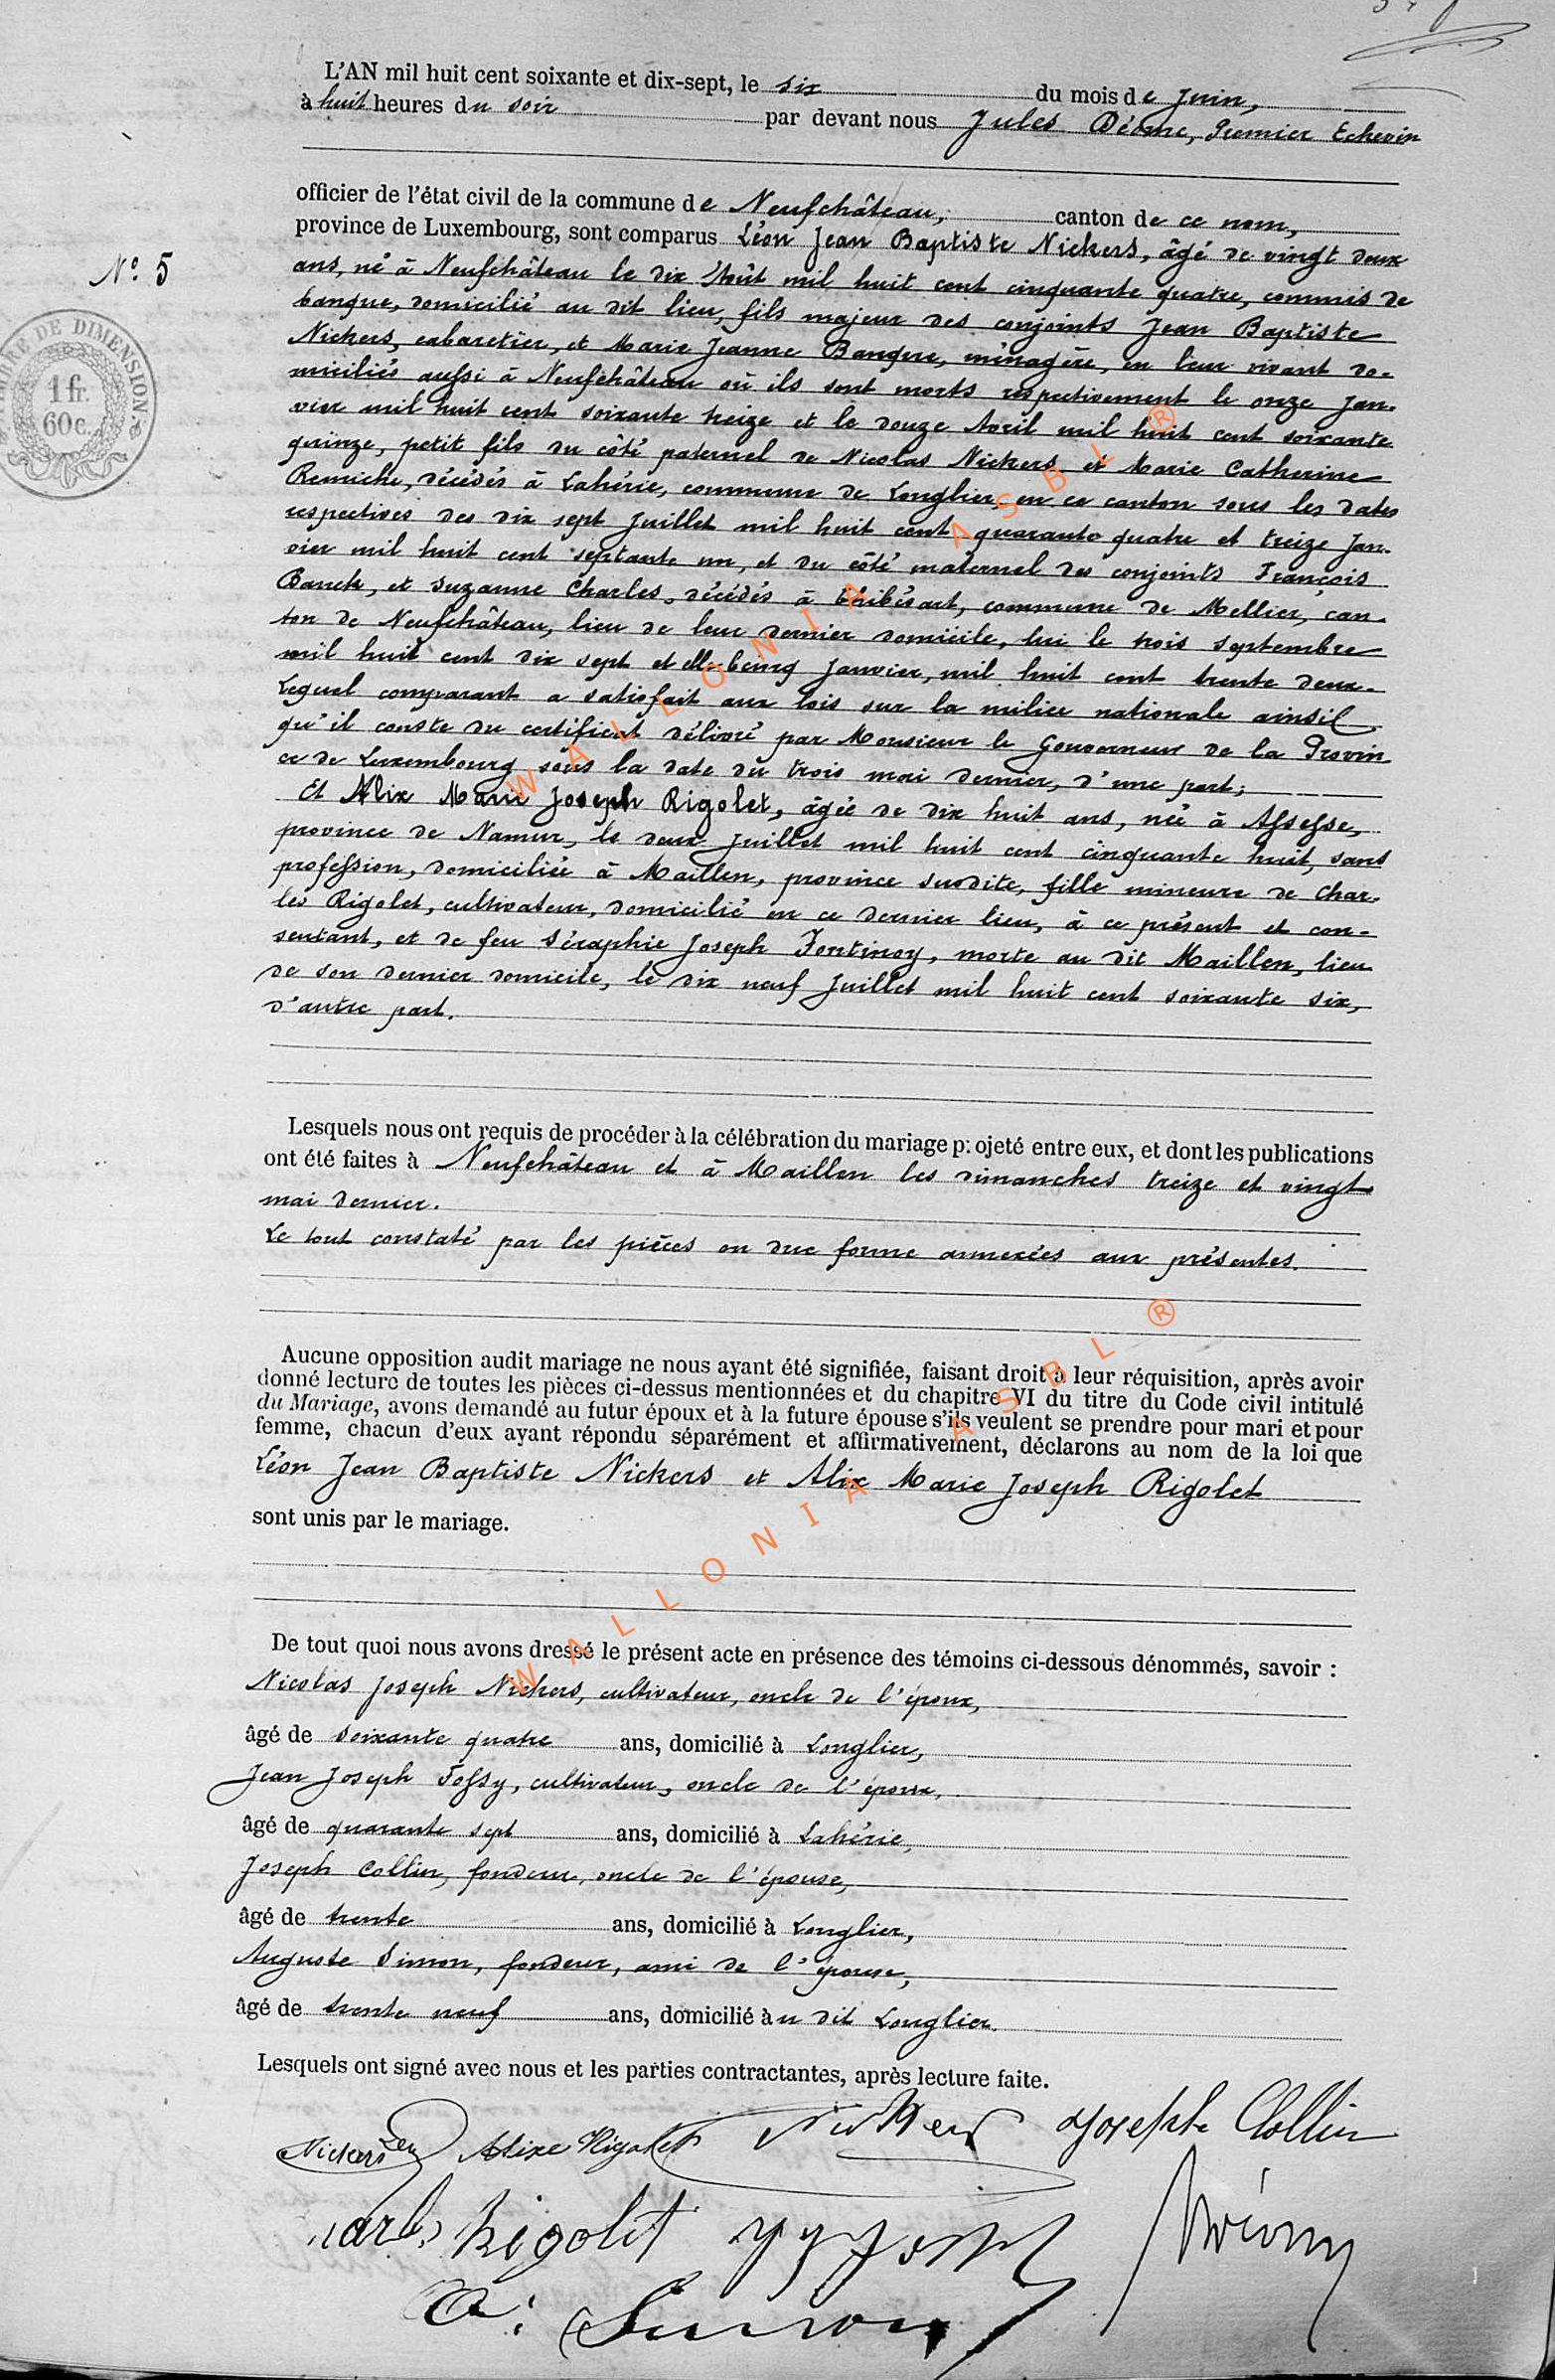 L'AN mil huit cent soixante et dix-sept, le six du mois de Juin,
à huit heures du soir par devant nous Jules Déome, Premier Echevin
officier de l'état civil de la commune de Neufchâteau, canton de ce nom,
province de Luxembourg, sont comparus Léon Jean Baptiste Nickers, âgé de vingt deux
N.° 5
ans, né à Neufchâteau le dix Août mil huit cent cinquante quatre, commis de
banque, domicilié au dit lieu, fils majeur des conjoints Jean Baptiste
Nickers, cabaretier, et Marie Jeanne ménagère, en leur vivant do-
miciliés aussi à Neufchâteau où ils sont morts respectivement le onze Jan-
vier mil huit cent soixante treize et le douze Avril mil huit cent soixante
quinze, petit fils du côté paternel de Nicolas Nickers et Marie Catherine
Remiche, décédés à Lahérie, commune de Longlier, en ce canton sous les dates
respectives des dix sept Juillet mil huit cent quarante quatre et treize Jan-
vier mil huit cent septante un, et du côté maternel des conjoints François
et Suzanne Charles, décédés à Thibésart, commune de Mellier, can-
ton de Neufchâteau, lieu de leur dernier domicile, lui le trois septembre
mil huit cent dix sept et elle le cinq Janvier, mil huit cent trente deux.
Lequel comparant a satisfait aux lois sur la milice nationale ainsi
qu'il conste du certificat délivré par Monsieur le Gouverneur de la Provin
ce de Luxembourg sous la date du trois mai dernier, d'une part;
Et Alix Marie Joseph Rigolet, âgée de dix huit ans, née à Assesse,
province de Namur, le deux Juillet mil huit cent cinquante huit, sans
profession, domiciliée à Maillen, province susdite, fille mineure de Char-
les Rigolet, cultivateur, domicilié en ce dernier lieu, à ce présent et con-
sentant, et de feu Séraphie Joseph Fontinoy, morte au dit Maillen, lieu
de son dernier domicile, le dix neuf Juillet mil huit cent soixante six,
d'autre part.
TIMBRE DE DIMENSION
1 fr.
60 c.
Lesquels nous ont requis de procéder à la célébration du mariage projeté entre eux, et dont les publications
ont été faites à Neufchâteau et à Maillen les dimanches treize et vingt
mai dernier.
Le tout constaté par les pièces en due forme annexées aux présentes.
Aucune opposition audit mariage ne nous ayant été signifiée, faisant droit à leur réquisition, après avoir
donné lecture de toutes les pièces ci-dessus mentionnées et du chapitre VI du titre du Code civil intitulé
du Mariage, avons demandé au futur époux et à la future épouse s'ils veulent se prendre pour mari et pour
femme, chacun d'eux ayant répondu séparément et affirmativement, déclarons au nom de la loi que
Léon Jean Baptiste Nickers et Alix Marie Joseph Rigolet
sont unis par le mariage.
De tout quoi nous avons dressé le présent acte en présence des témoins ci-dessous dénommés, savoir :
Nicolas Joseph Nickers, cultivateur, oncle de l'époux,
âgé de soixante quatre ans, domicilié à Longlier,
Jean Joseph Fossy, cultivateur, oncle de l'époux,
âgé de quarante sept ans, domicilié à Lahérie,
Joseph Collin, fondeur, oncle de l'épouse,
âgé de trente ans, domicilié à Longlier,
Auguste Simon, fondeur, ami de l'épouse,
âgé de trente neuf ans, domicilié au dit Longlier.
Lesquels ont signé avec nous et les parties contractantes, après lecture faite.
Nickers Léon Alixe Rigolet Nickers Joseph Collin
Charles Rigolet JJ Fossy Déome
A. Simon
WALLONIA ASBL ®
WALLONIA ASBL ®